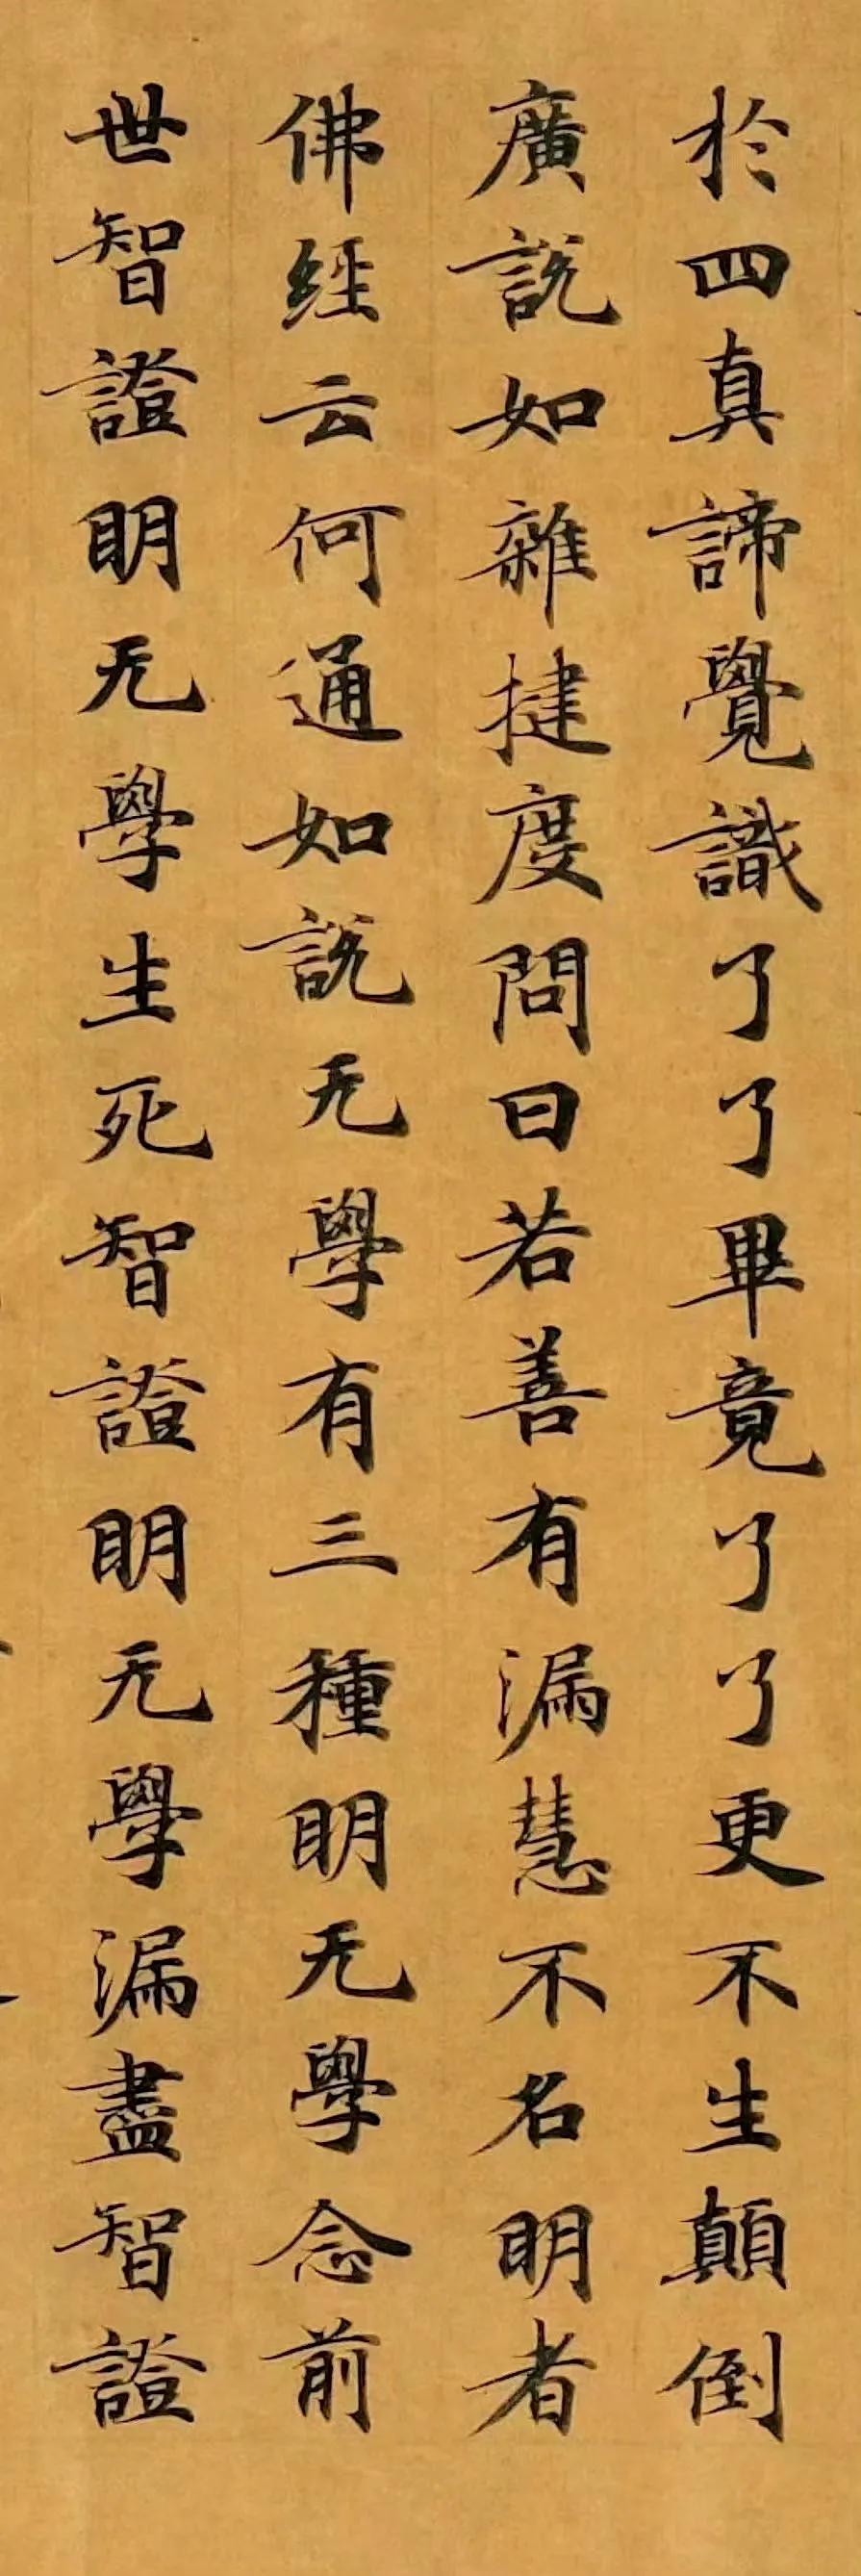 於四真諦覺識了了畢竟了了更不生顛倒
廣說如雜揵度問曰若善有漏慧不名明者
佛經云何通如說无學有三種明无學念前
世智證明无學生死智證明无學漏盡智證